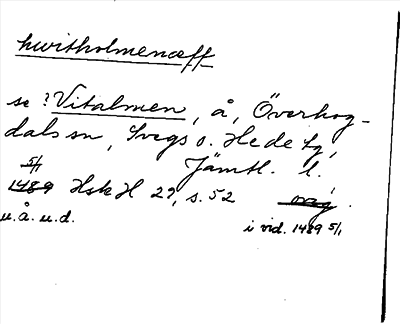 hwitholmenæff
se ? Vitalmen, å, Överhog-
dals sn, Svegs o. Hede tg,
5/1 Jämtl. l.
1489 HskH 29, s. 52 orig.
u.å.u.d.
i vid. 1489 5/1